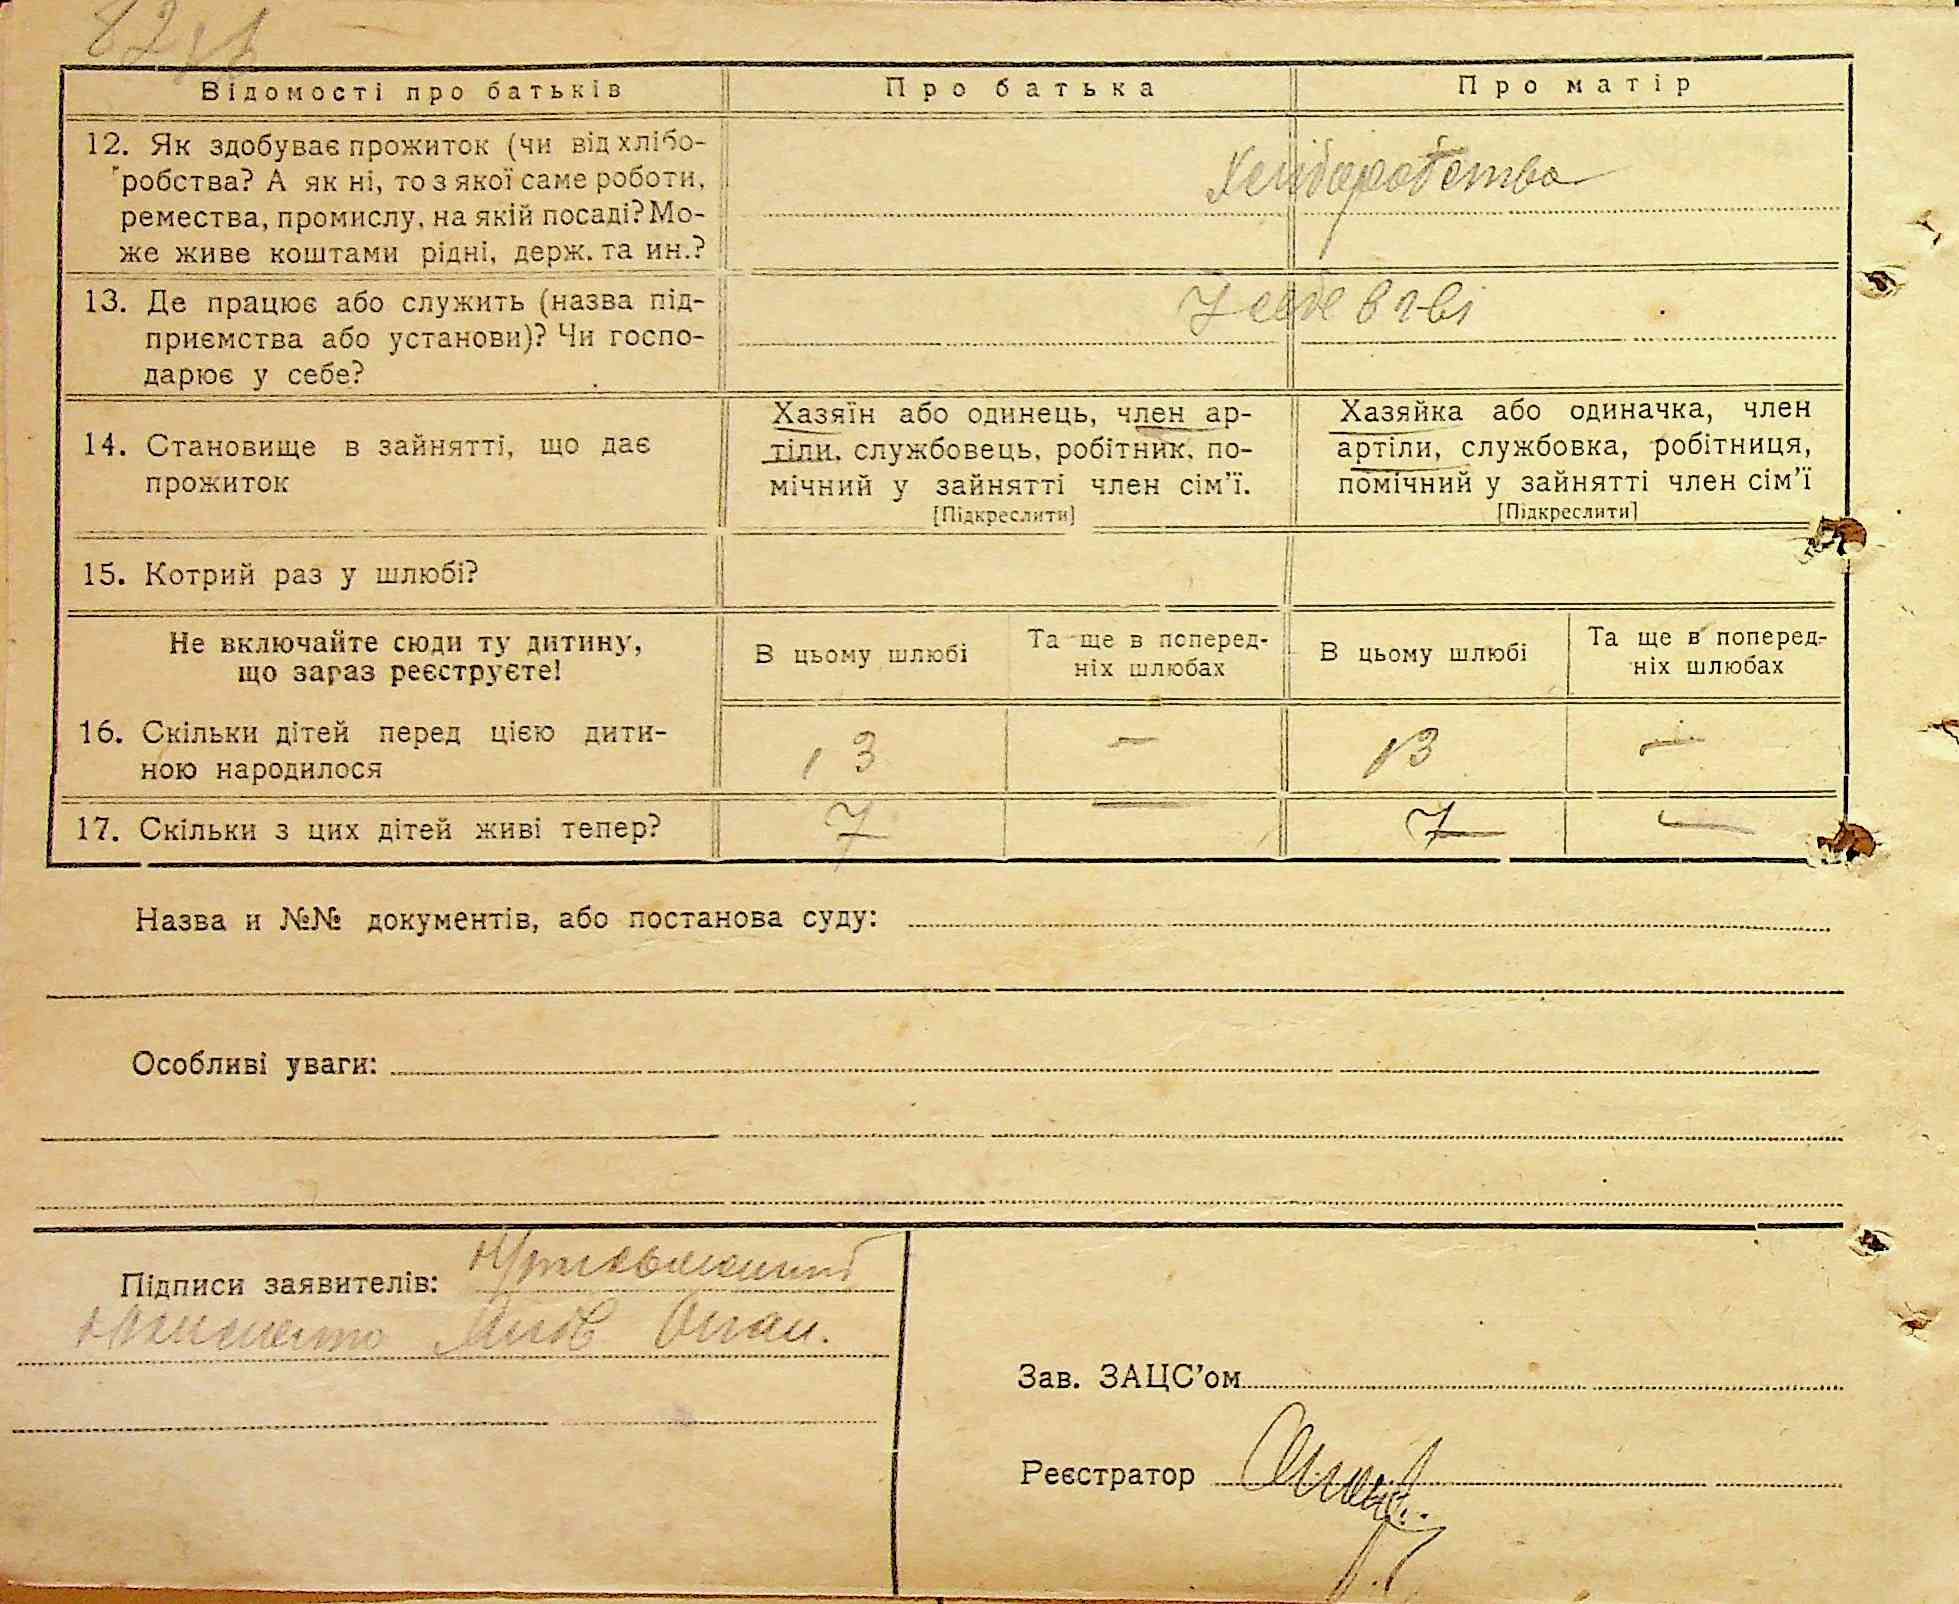 82
Відомості про батьків
Про батька
Про матір
12. Як здобуває прожиток (чи від хлібо-
робства? А як ні, то з якої саме роботи,
ремества, промислу, на якій посаді? Мо-
же живе коштами рідні, держ. та ин.?
Хлібаробство
13. Де працює або служить (назва під-
приємства або установи)? Чи госпо-
дарює у себе?
У себе в
14. Становище в зайнятті, що дає
прожиток
Хазяїн або одинець, член ар-
тіли, службовець, робітник, по-
мічний у зайнятті член сім'ї.
[Підкреслити]
Хазяйка або одиначка, член
артіли, службовка, робітниця,
помічний у зайнятті член сім'ї
[Підкреслити]
15. Котрий раз у шлюбі?
Не включайте сюди ту дитину,
що зараз реєструєте!
В цьому шлюбі
Та ще в поперед-
ніх шлюбах
В цьому шлюбі
Та ще в поперед-
ніх шлюбах
16. Скільки дітей перед цією дити-
ною народилося
13 — 13 —
17. Скільки з цих дітей живі тепер?
7 — 7 —
Назва и №№ документів, або постанова суду:
Особливі уваги:
Підписи заявителів:
Зав. ЗАЦС'ом
Реєстратор